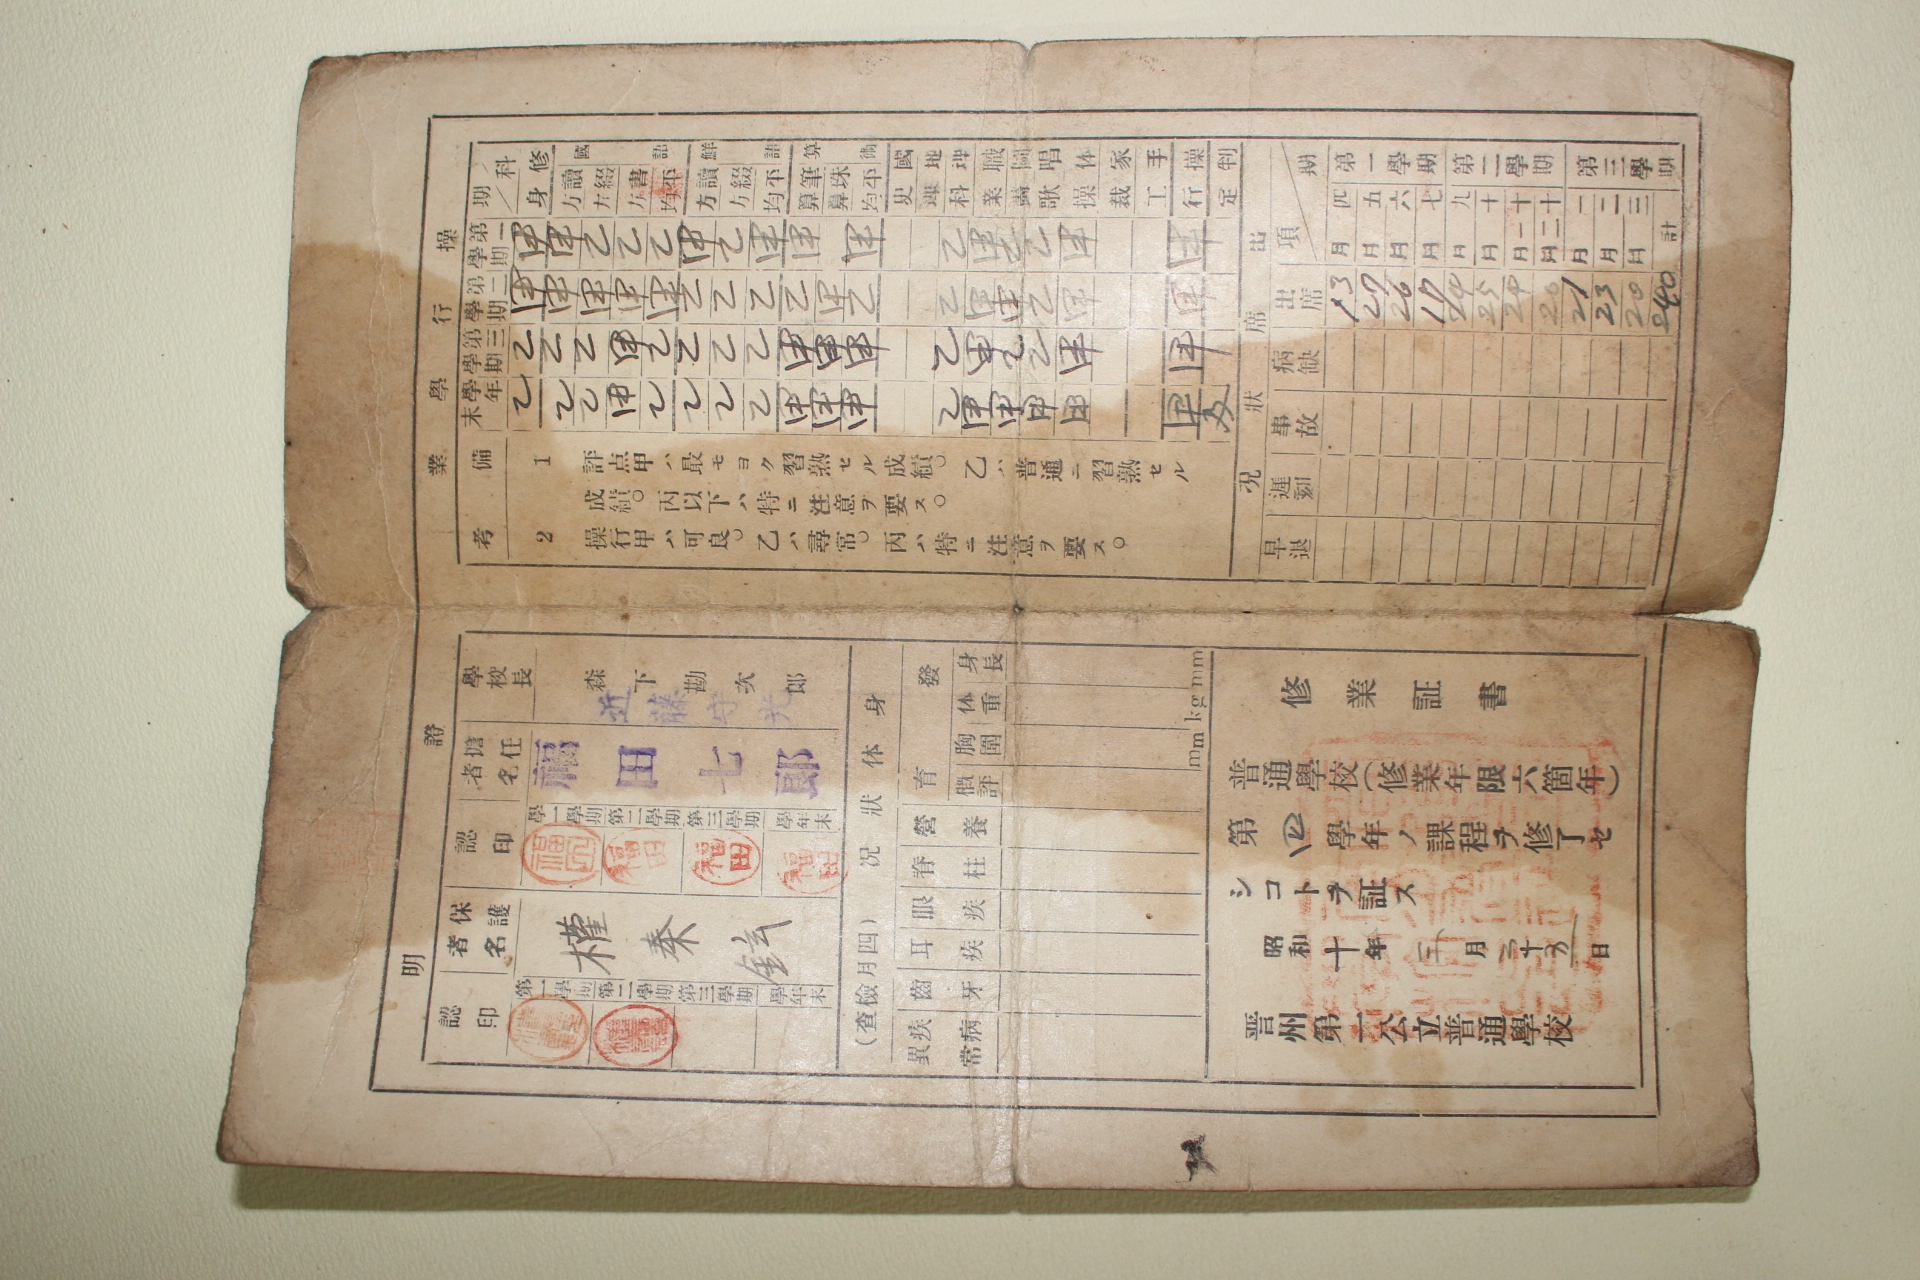 學業操行
科
期
修身
國語
讀方
綴方
書方
平均
鮮語
讀方
綴方
平均
算術
筆算
珠算
平均
國史
地理
理科
職業
圖畫
唱歌
体操
家裁
手工
操行
判定
第一學期
甲
甲
乙
乙
乙
甲
乙
甲
甲
甲
乙
甲
乙
甲
甲
第二學期
甲
甲
甲
甲
甲
乙
乙
乙
乙
甲
乙
乙
甲
乙
甲
甲
第三學期
乙
乙
乙
甲
乙
乙
乙
乙
甲
甲
甲
乙
甲
乙
乙
甲
甲
學年末
乙
乙
乙
甲
乙
乙
乙
乙
甲
甲
甲
乙
甲
甲
甲
甲
甲
備考
1 評点甲ハ最モヨク習熟セル成績。乙ハ普通ニ習熟セル
成績。丙以下ハ特ニ注意ヲ要ス。
2 操行甲ハ可良。乙ハ尋常。丙ハ特ニ注意ヲ要ス。
出席狀況
期
項
第一學期
四月
五月
六月
七月
第二學期
九月
十月
十一月
十二月
第三學期
一月
二月
三月
計
出席
13
27
26
17
24
25
24
20
21
23
20
240
病缺
事故
遲刻
早退
證明
學校長
森下勘次郎
近藤守光
擔任者名
福田七郎
認印
第一學期
第二學期
第三學期
學年末
福田
福田
福田
保護者名
權泰鉉
認印
第一學期
第二學期
第三學期
學年末
身体狀況(四月檢查)
發育
身長
体重
胸圍
概評
營養
脊柱
眼疾
耳疾
齒牙
疾病
異常
mm
kg
mm
修業証書
普通學校(修業年限六箇年)
第四學年ノ課程ヲ修了セ
シコトヲ証ス
昭和十年三月二十五日
晋州第一公立普通學校